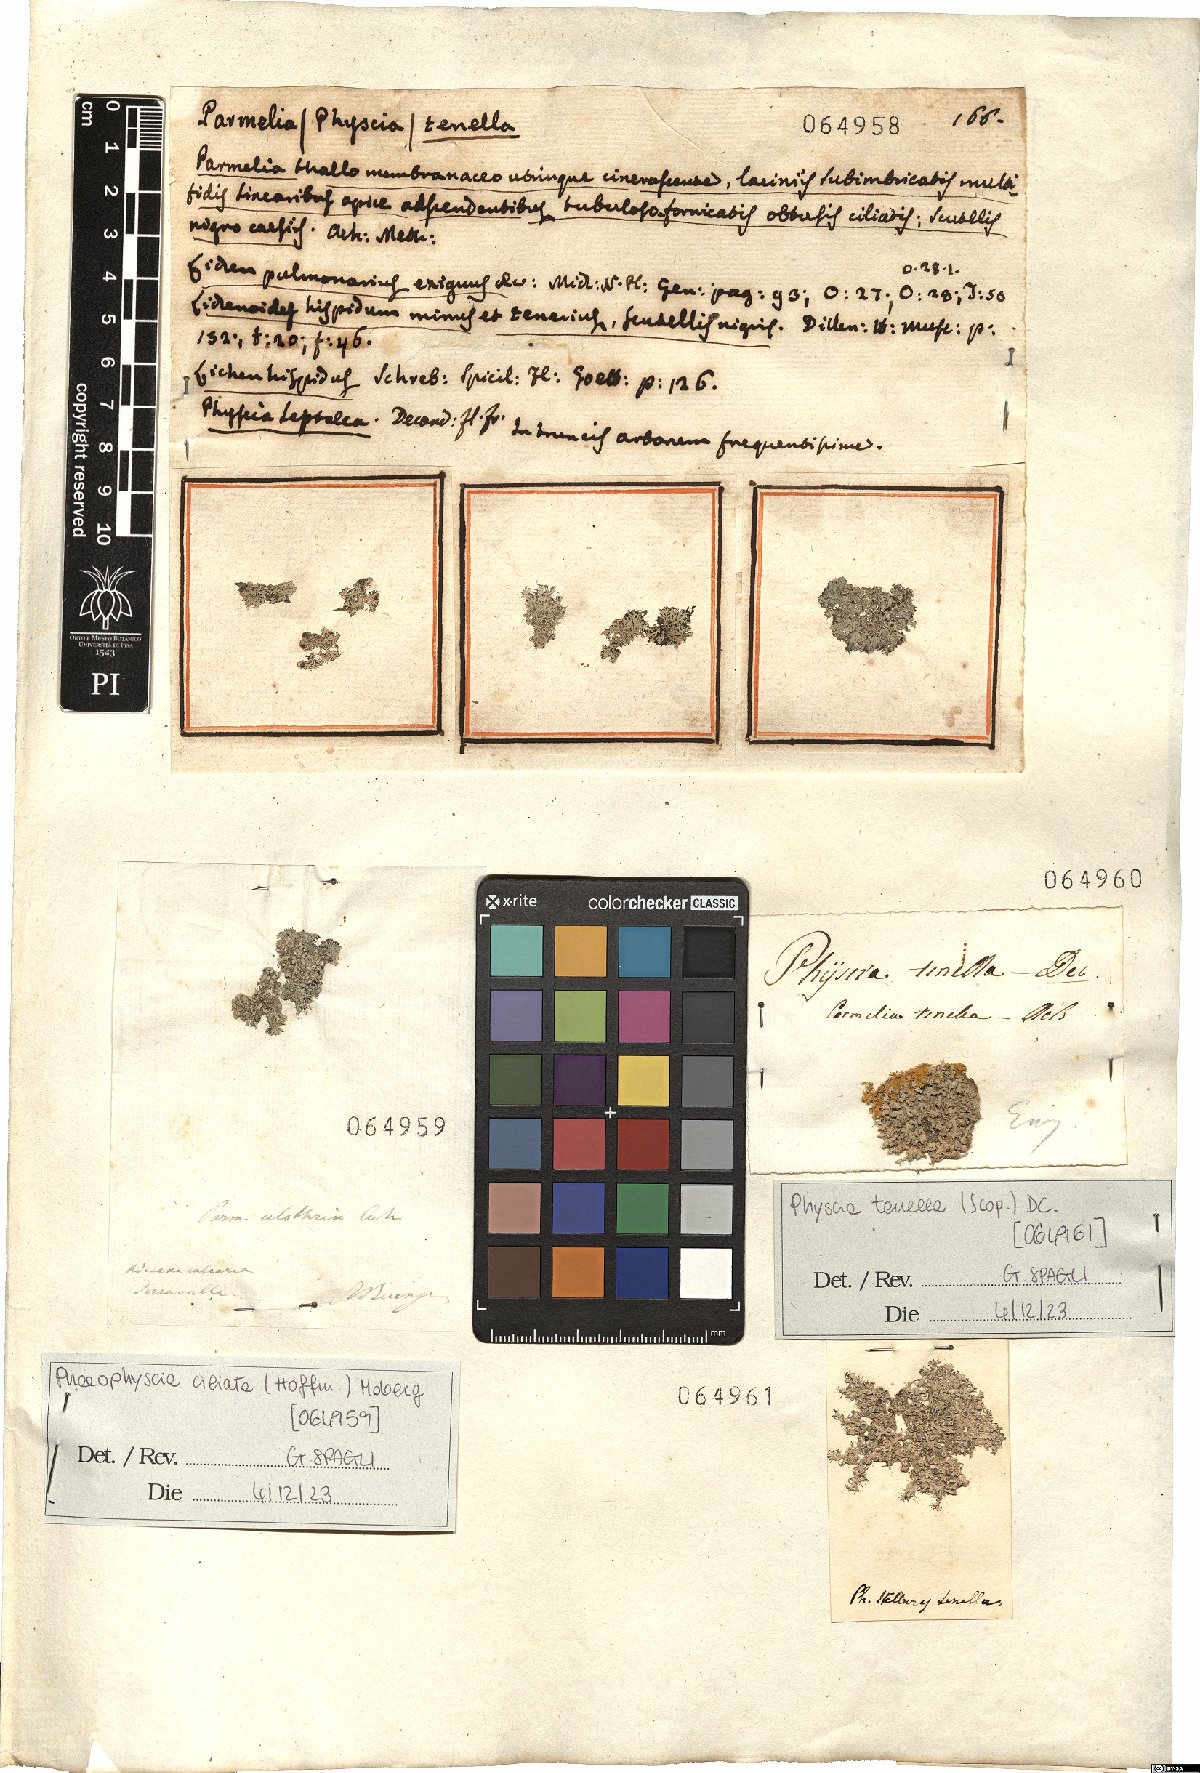 Parmelia (Physcia) tenella
064958
166.
Parmelia thallo membranaceo utrinque cinerascente, laciniis subimbricatis multi-
fidis linearibus apice adscendentibus tubuloso-fornicatis obtusis ciliatis; scutellis
nigro caesiis. Ach: Meth:
0.28.1.
Lichen pulmonarius exiguus &c: Mich: N. Pl: Gen: pag: 93; O: 27; O: 28; T: 50
Lichenoides hispidum minus et tenerius, scutellis nigris. Dillen: H: Musc: p:
152; t: 20; f: 46.
Lichen hispidus Schreb: Spicil: Fl: p: 126.
Physcia leptalea. Decand: fl. fr. In truncis arborum frequentissime.
cm
0 1 2 3 4 5 6 7 8 9 10
copyright reserved
ORTO E MUSEO BOTANICO
UNIVERSITÀ DI PISA
1543
PI
064959
Parm. ulothrix Ach
Serravalle
x-rite colorchecker CLASSIC
mm
064960
Physcia tenella — Dec.
Parmelia tenella — Ach
Physcia tenella (Scop.) DC.
[064961]
Det. / Rev. G. SPAGLI
Die 4/12/23
Phaeophyscia ciliata (Hoffm.) Moberg
[064959]
Det. / Rev. G. SPAGLI
Die 4/12/23
064961
Ph. tenella